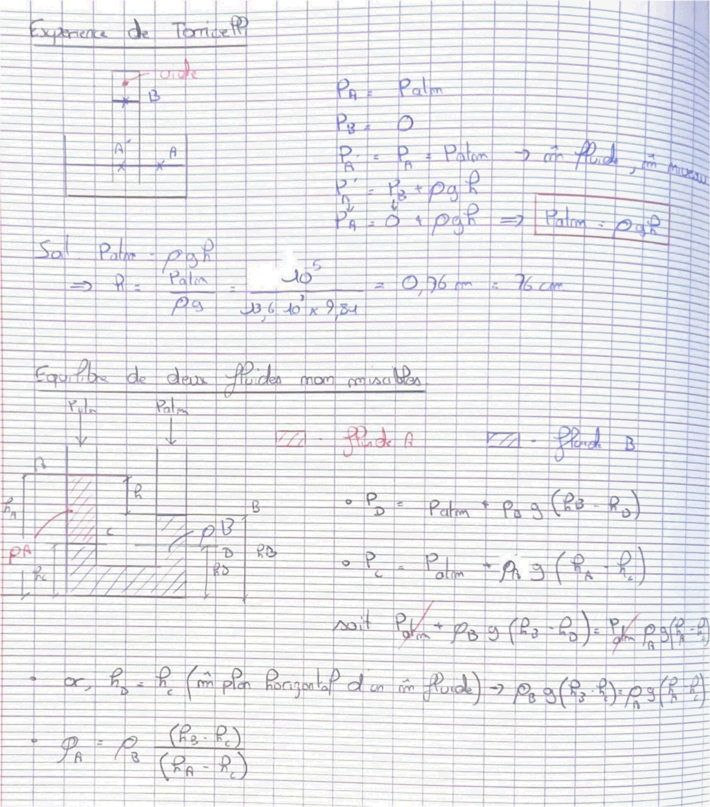 Expérience de Torricelli
vide
B
A' A
P_A = Patm
P_B = 0
P_A' = P_A = Patm → m̂ fluide, m̂ niveau
P_A' = P_B + ρgh
P_A = 0 + ρgh ⇒ Patm = ρgh
Soit Patm = ρgh
⇒ h = Patm / ρg = 10^5 / 13,6 10^3 × 9,81 = 0,76 m = 76 cm
Equilibre de deux fluides non miscibles
Patm Patm
▨ = fluide A ▨ = fluide B
A
h
h_A
B
C
ρB
ρA
D
h_B
h_D
h_C
• P_D = Patm + ρ_B g (h_B - h_D)
• P_C = Patm + ρ_A g (h_A - h_C)
soit Patm + ρ_B g (h_B - h_D) = Patm ρ_A g (h_A - h_C)
• or, h_D = h_C (m̂ plan horizontal d'un m̂ fluide) → ρ_B g (h_B - h_C) = ρ_A g (h_A - h_C)
• ρ_A = ρ_B (h_B - h_C) / (h_A - h_C)